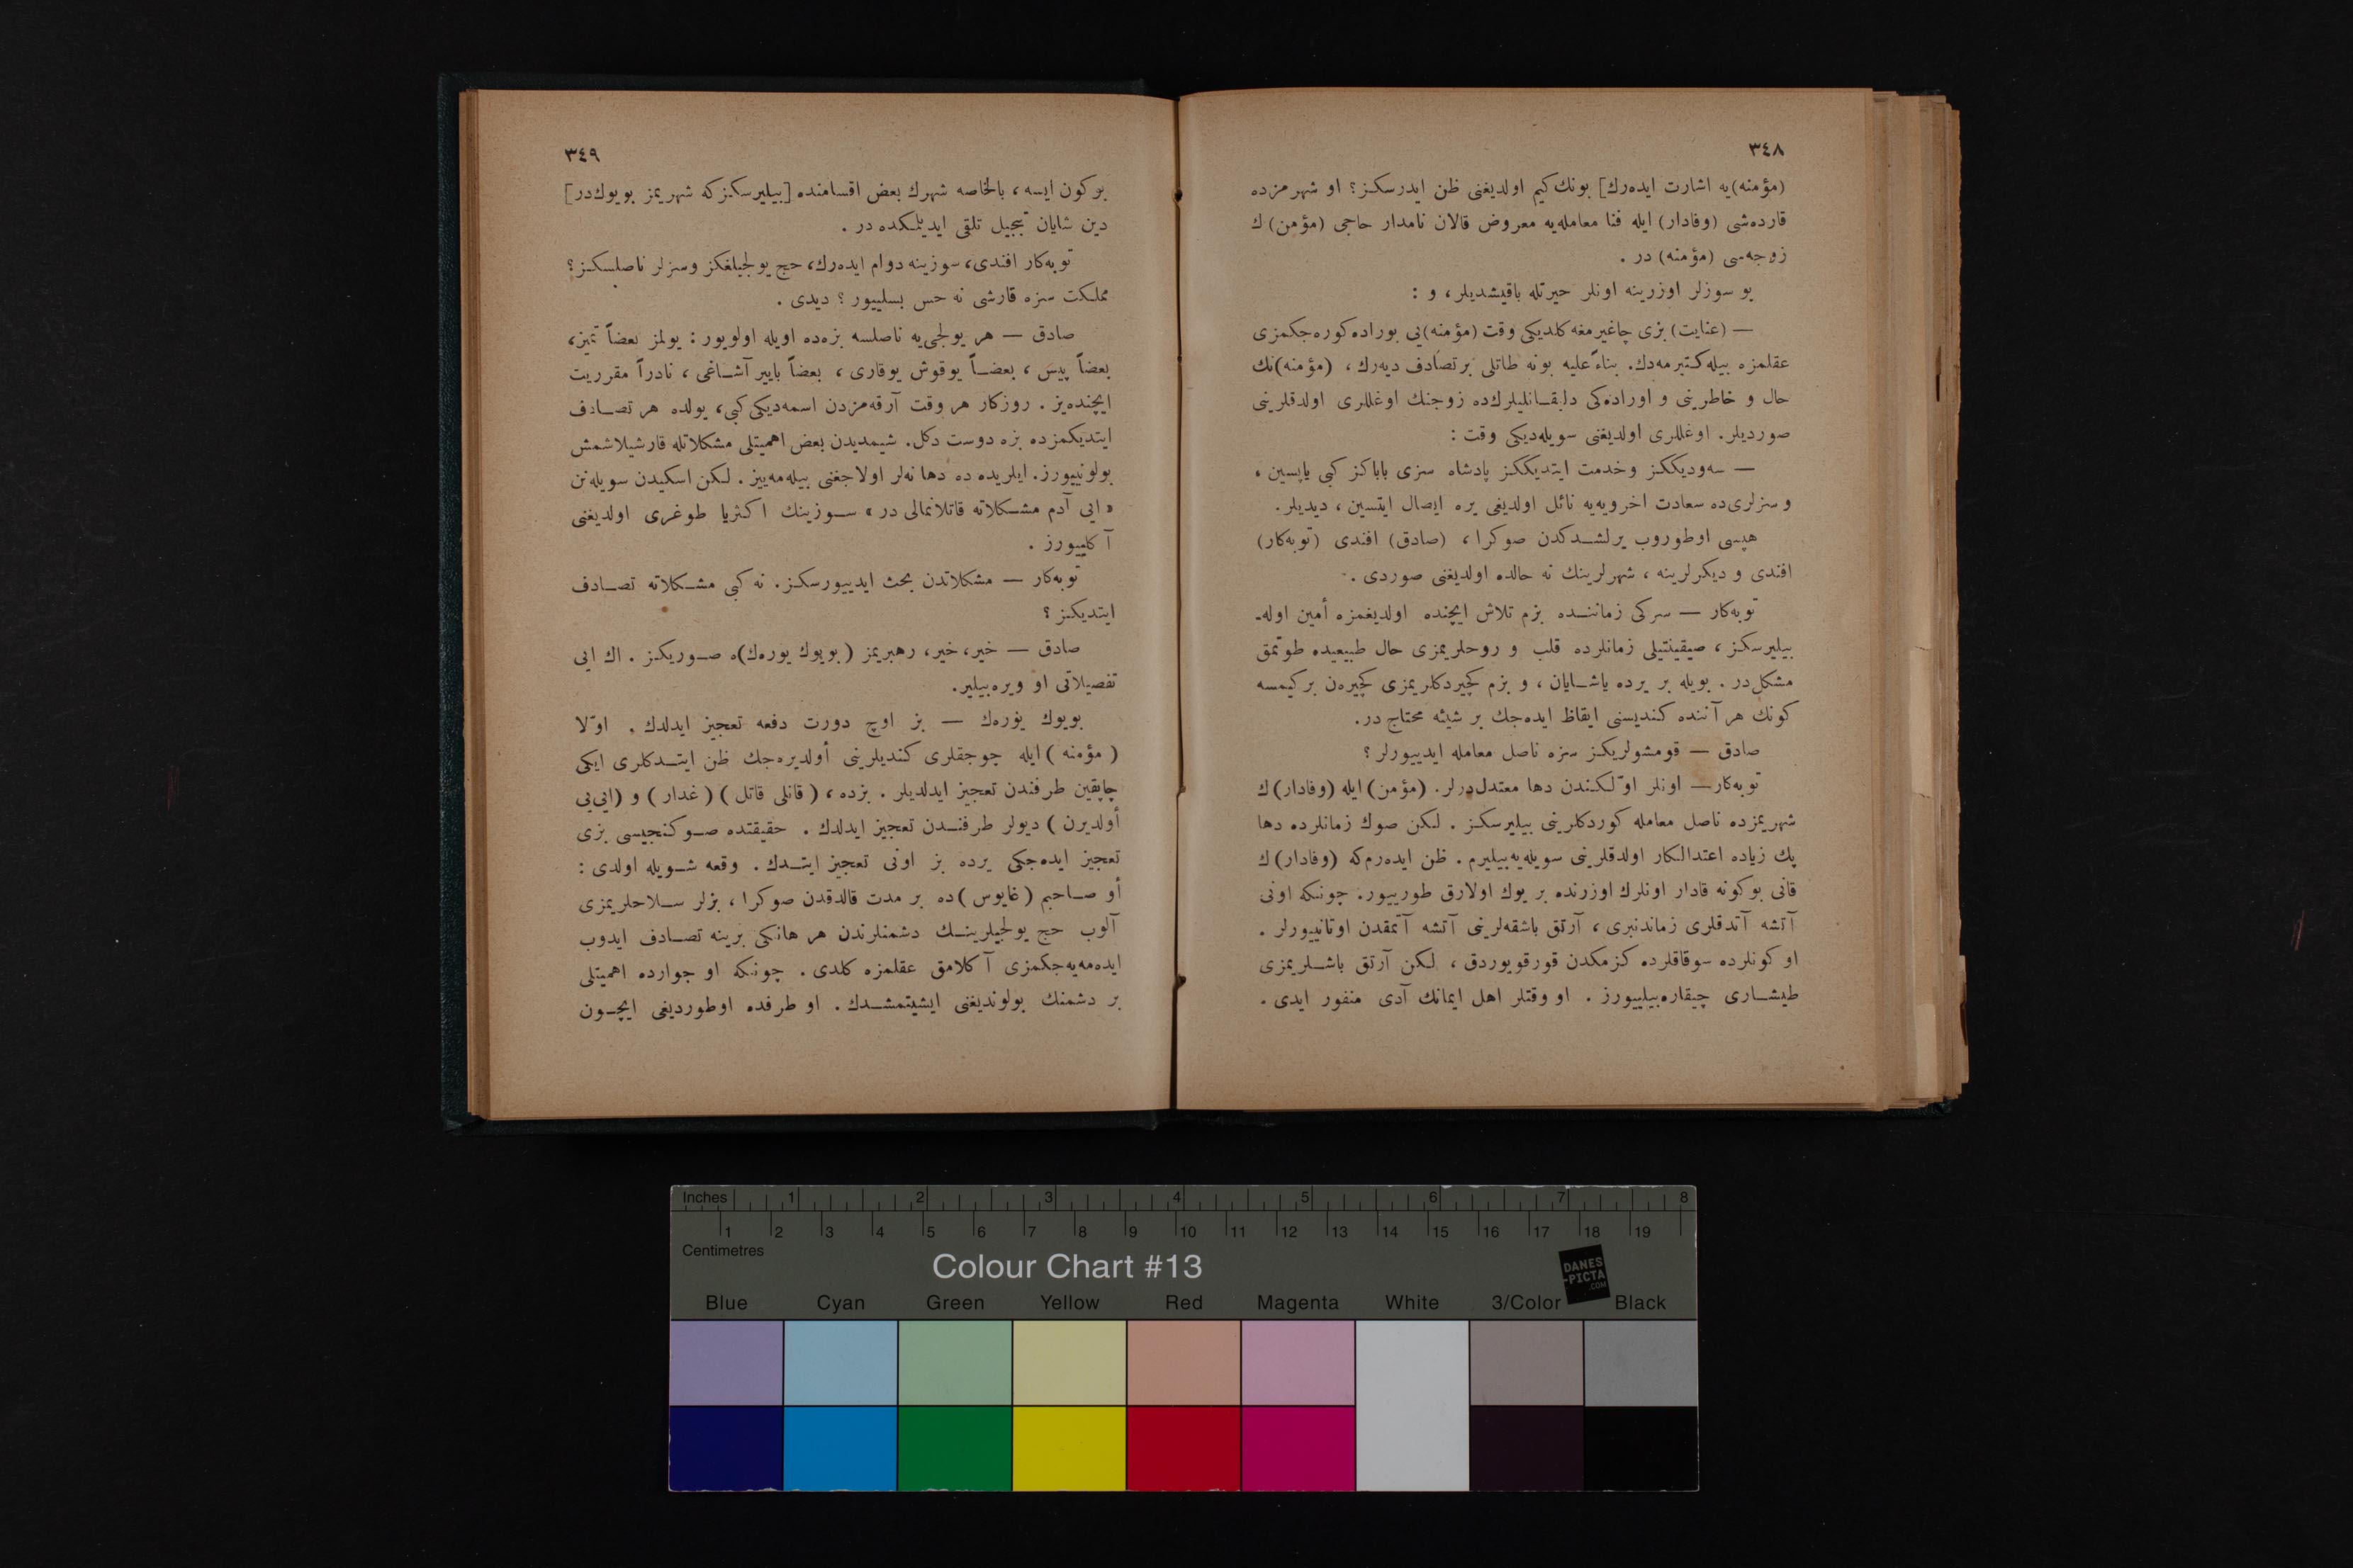 ٣٤٨
(مؤمنه)یه اشارت ایده‌رك] بونك كیم اولدیغنی ظن ایدرسكز؟ او شهرمزده
قارده‌شی (وفادار) ایله فنا معامله‌یه معروض قالان نامدار حاجی (مؤمن)ك
زوجه‌سی (مؤمنه) در .
بو سوزلر اوزرینه اونلر حیرتله باقیشدیلر، و :
— (عنایت) بزی چاغیرمغه كلدیكی وقت (مؤمنه)یی بوراده كوره‌جكمزی
عقلمزه بیله كتیرمه‌دك. بناءً علیه بونه طاتلی برتصادف دیه‌رك ، (مؤمنه)نك
حال و خاطرینی و اوراده‌كی دلیقـانلیلرك‌ده زوجنك اوغللری اولدقلرینی
صوردیلر. اوغللری اولدیغنی سویله‌دیكی وقت :
— سه‌ودیككز وخدمت ایتدیككز پادشاه سزی باباكز كبی یاپسین ،
و سزلری‌ده سعادت اخرویه‌یه نائل اولدیغی یره ایصال ایتسین ، دیدیلر.
هپسی اوطوروب یرلشـدكدن صوكرا، (صادق) افندی (توبه‌كار)
افندی و دیكرلرینه ، شهرلرینك نه حالده اولدیغنی صوردی .
توبه‌كار — سركی زماننـده بزم تلاش ایچنده اولدیغمزه أمین اوله‌ـ
بیلیرسكز ، صیقینتیلی زمانلرده قلب و روحلریمزی حال طبیعیده طوتمق
مشكل‌در . بویله بر یرده یاشـایان ، و بزم كچیردكلریمزی كچیره‌ن بر كیمسه
كونك هر آننده كندیسنی ایقاظ ایده‌جك بر شیئه محتاج در.
صادق — قومشولریكز سزه ناصل معامله ایدییورلر ؟
توبه‌كار— اونلر اوّلكندن دها معتدل‌درلر. (مؤمن) ایله (وفادار)ك
شهریمزده ناصل معامله كوردكلرینی بیلیرسكز . لكن صوك زمانلرده دها
پك زیاده اعتدالكار اولدقلرینی سویله‌یه‌بیلیرم . ظن ایده‌رم‌كه (وفادار)ك
قانی بوكونه قادار اونلرك اوزرنده بر یوك اولارق طورییور. چونكه اونی
آتشه آتدقلری زماندنبری ، آرتق باشقه‌لرینی آتشه آتمقدن اوتانییورلر .
او كونلرده سوقاقلرده كزمكدن قورقویوردق ، لكن آرتق باشـلریمزی
طیشـاری چیقاره‌بیلییورز . او وقتلر اهل ایمانك آدی منفور ایدی .
٣٤٩
بوكون ایسه ، بالخاصه شهرك بعض اقسامنده [بیلیرسكز كه شهریمز بویوك‌در]
دین شایان تبجیل تلقی ایدیلمكده در .
توبه‌كار افندی، سوزینه دوام ایده‌رك، حج یولجیلغكز وسزلر ناصلسكز؟
مملكت سزه قارشی نه حس بسلییور ؟ دیدی .
صادق — هر یولجی‌یه ناصلسه بزه‌ده اویله اولویور : یولمز بعضاً تمیز،
بعضاً پیس ، بعضـاً یوقوش یوقاری ، بعضاً باییر آشـاغی ، نادراً مقرریت
ایچنده‌یز . روزكار هر وقت آرقه‌مزدن اسمه‌دیكی كبی، یولده هر تصـادف
ایتدیكمزده بزه دوست دكل. شیمدیدن بعض اهمیتلی مشكلاتله قارشیلاشمش
بولونییورز. ایلریده ده دها نه‌لر اولاجغنی بیله‌مه‌ییز . لكن اسكیدن سویله‌نن
« ایی آدم مشـكلاته قاتلانمالی در » سـوزینك اكثریا طوغری اولدیغنی
آكلییورز .
توبه‌كار — مشكلاتدن بحث ایدییورسكز. نه كبی مشـكلاته تصـادف
ایتدیكز ؟
صادق — خیر، خیر، رهبریمز (بویوك یوره‌ك)ه صـوریكز . اك ایی
تفصیلاتی او ویره‌بیلیر.
بویوك یوره‌ك — بز اوچ دورت دفعه تعجیز ایدلدك . اوّلا
( مؤمنه ) ایله چوجقلری كندیلرینی أولدیره‌جك ظن ایتـدكلری ایكی
چاپقین طرفندن تعجیز ایدلدیلر . بزده ، ( قانلی قاتل ) ( غدار ) و (ایی‌یی
أولدیرن ) دیولر طرفنـدن تعجیز ایدلدك . حقیقتده صـوكنجیسی بزی
تعجیز ایده‌جكی یرده بز اونی تعجیز ایتـدك . وقعه شـویله اولدی :
أو صـاحبم (غایوس)ده بر مدت قالدقدن صوكرا ، بزلر سـلاحلریمزی
آلوب حج یولجیلرینـك دشمنلرندن هر هانكی برینه تصـادف ایدوب
ایده‌مه‌یه‌جكمزی آكلامق عقلمزه كلدی . چونكه او جوارده اهمیتلی
بر دشمنك بولوندیغنی ایشیتمشـدك . او طرفده اوطوردیغی ایچـون
Inches 1 2 3 4 5 6 7 8
1 2 3 4 5 6 7 8 9 10 11 12 13 14 15 16 17 18 19
Centimetres
Colour Chart #13
DANES
-PICTA
.COM
Blue Cyan Green Yellow Red Magenta White 3/Color Black